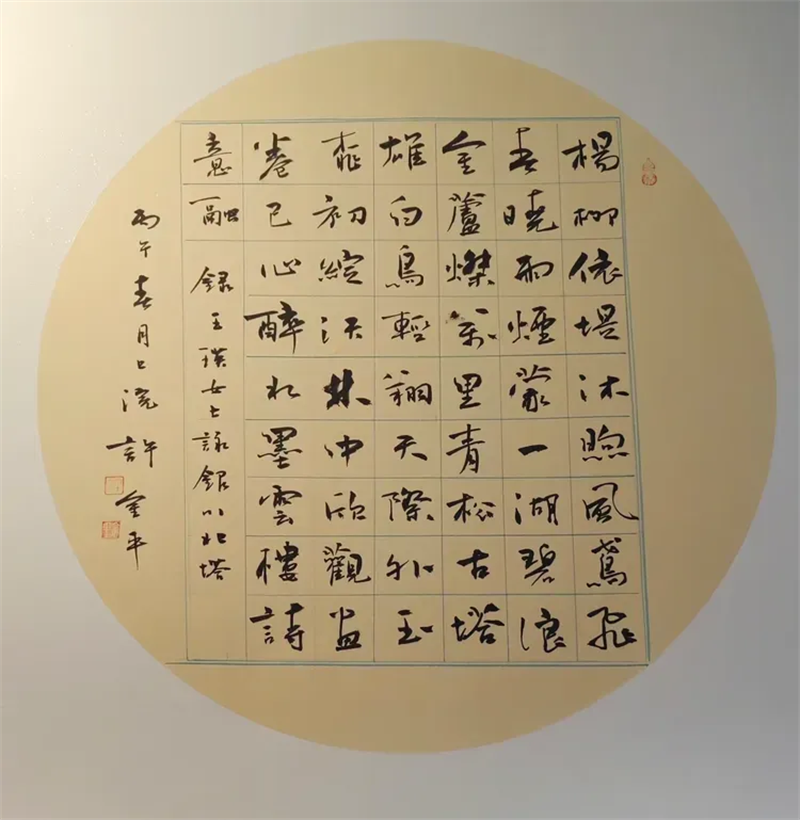 楊柳依堤沐煦風鶯飛
春曉雨煙蒙一湖碧浪
金蘆燦萬里青松古塔
雄白鳥輕翔天際外玉
桃初綻沃林中欣觀畫
卷已心醉水墨雲樓詩
意融 錄王瑛女士詠銀川北塔
丙午春月上浣許金平